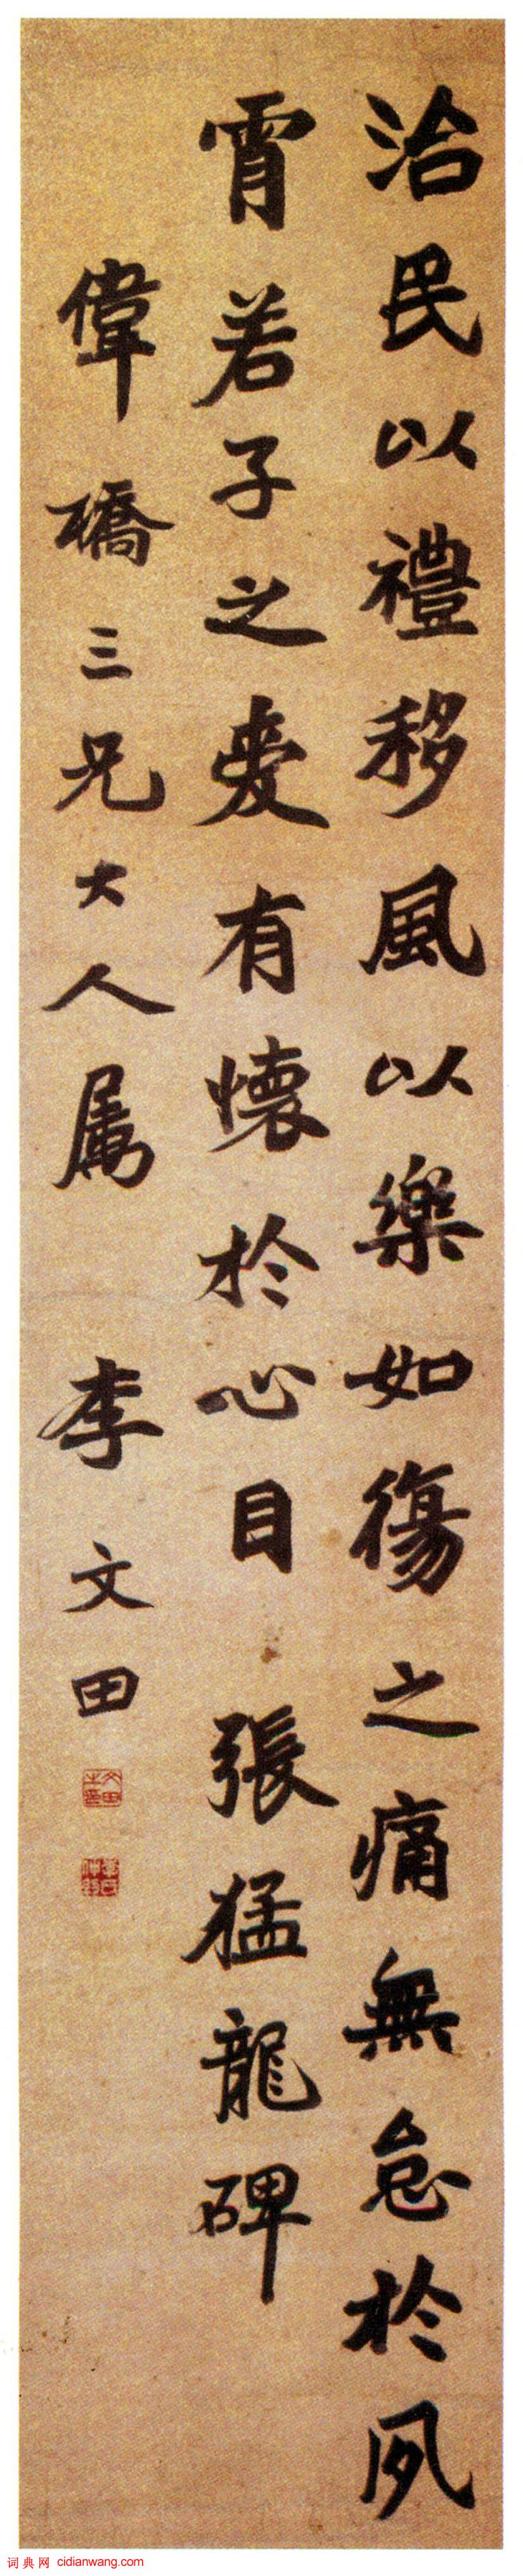 治民以禮移風以樂如傷之痛無怠於夙
霄若子之愛有懷於心目 張猛龍碑
偉橋三兄大人属 李文田
文田之印
词典网 cidianwang.com